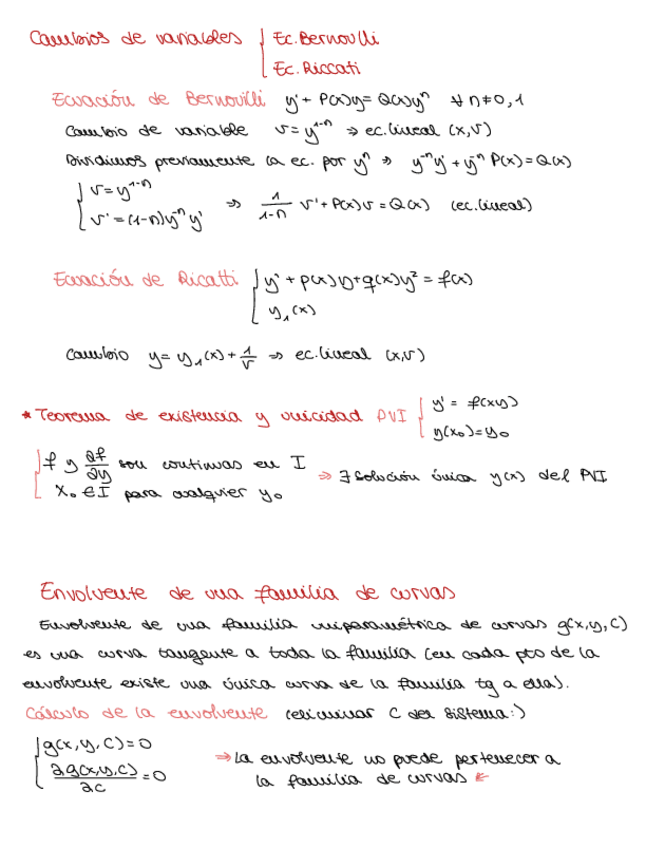 Cambios de variables { Ec. Bernoulli
Ec. Riccati
Ecuación de Bernouilli y' + P(x)y = Q(x)yⁿ ∀ n≠0,1
Cambio de variable v = y¹⁻ⁿ ⇒ ec. lineal (x,v)
Dividimos previamente la ec. por yⁿ ⇒ y⁻ⁿy' + y⁻ⁿ P(x) = Q(x)
{ v = y¹⁻ⁿ
v' = (1-n)y⁻ⁿ y' ⇒ 1/(1-n) v' + P(x)v = Q(x) (ec. lineal)
Ecuación de Ricatti { y' + p(x)y + q(x)y² = f(x)
y₁(x)
Cambio y = y₁(x) + 1/v ⇒ ec. lineal (x,v)
* Teorema de existencia y unicidad PVI { y' = f(x,y)
y(x₀) = y₀
{ f y ∂f/∂y son continuas en I
x₀ ∈ I para cualquier y₀ ⇒ ∃ solución única y(x) del PVI
Envolvente de una familia de curvas
Envolvente de una familia uniparamétrica de curvas g(x,y,C)
es una curva tangente a toda la familia (en cada pto de la
envolvente existe una única curva de la familia tg a ella).
Cálculo de la envolvente (eliminar C del sistema:)
{ g(x,y,C) = 0
∂g(x,y,C)/∂C = 0
⇒ La envolvente no puede pertenecer a
la familia de curvas ⇐